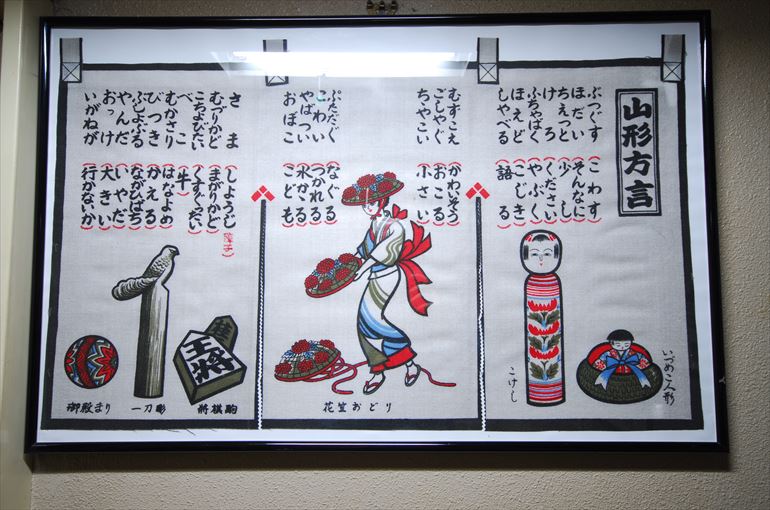 山形方言
ぶつぐす(こわす)
ほだい(そんなに)
ちぇっと(少し)
けろ(ください)
ふちゃばく(やぶく)
ほえど(こじき)
しゃべる(語る)
こけし
いづめこ人形
むずこえ(かわいそう)
ごしゃぐ(おこる)
ちゃこい(小さい)
ぶただぐ(なぐる)
こわい(つかれる)
やばつい
おぼこ(こども)
花笠おどり
さま(しょうじ)(障子)
むづりかど(まがりかど)
こちょびたい(くすぐったい)
べこ(牛)
むかさり(はなよめ)
びっき(かえる)
(ながひばち)
やんだ(いやだ)
おっけ(大きい)
いがねが(行かないか)
王将
御殿まり
一刀彫
将棋駒